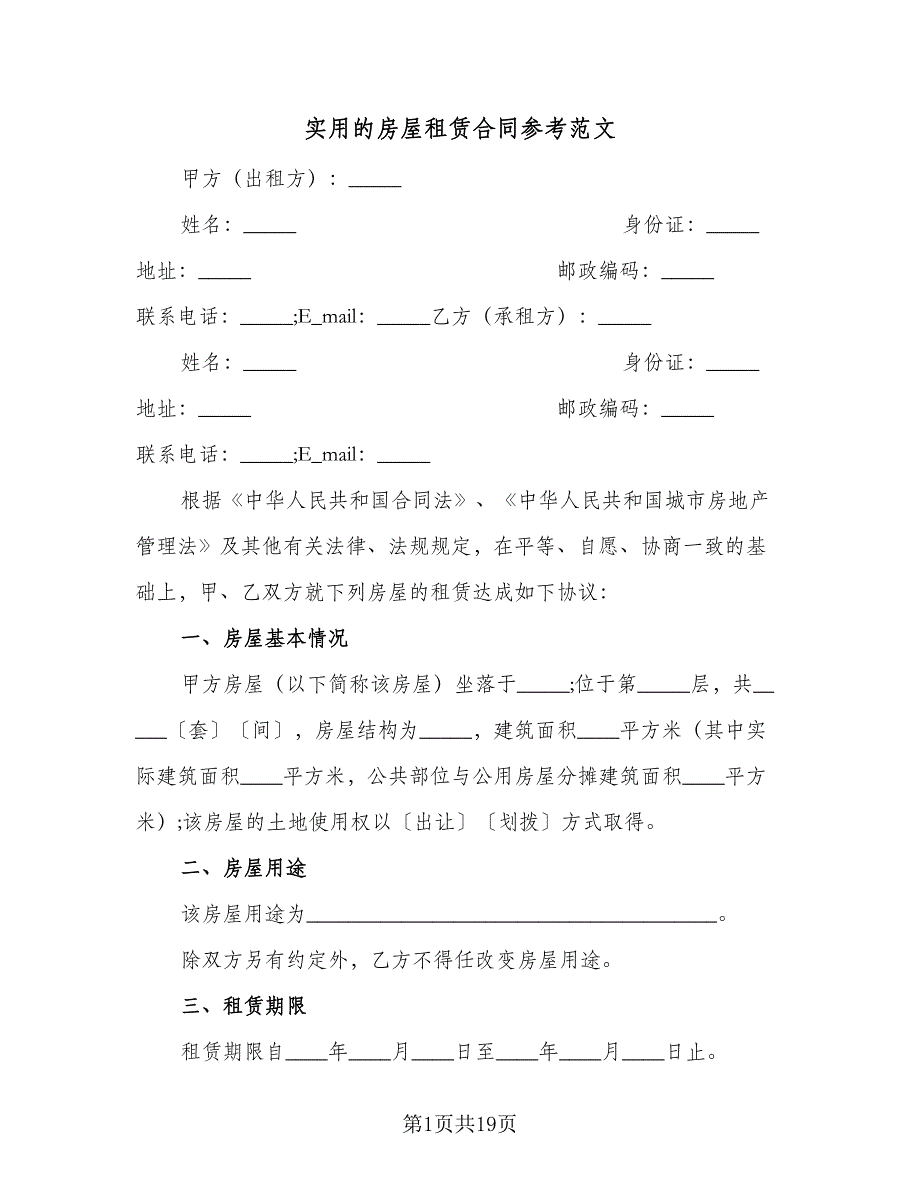 实用的房屋租赁合同参考范文
甲方（出租方）：_____
姓名：_____ 身份证：_____
地址：_____ 邮政编码：_____
联系电话：_____;E_mail：_____乙方（承租方）：_____
姓名：_____ 身份证：_____
地址：_____ 邮政编码：_____
联系电话：_____;E_mail：_____
根据《中华人民共和国合同法》、《中华人民共和国城市房地产
管理法》及其他有关法律、法规规定，在平等、自愿、协商一致的基
础上，甲、乙双方就下列房屋的租赁达成如下协议：
一、房屋基本情况
甲方房屋（以下简称该房屋）坐落于_____;位于第_____层，共__
___〔套〕〔间〕，房屋结构为_____，建筑面积____平方米（其中实
际建筑面积____平方米，公共部位与公用房屋分摊建筑面积____平方
米）;该房屋的土地使用权以〔出让〕〔划拨〕方式取得。
二、房屋用途
该房屋用途为_______________________________________。
除双方另有约定外，乙方不得任改变房屋用途。
三、租赁期限
租赁期限自____年____月____日至____年____月____日止。
第1页共19页